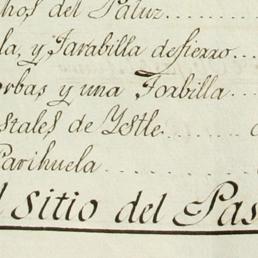 del Paluz
la, y Tarabilla de fierro
y una Torbilla
stales de Ystle
Parihuela
l sitio del Pas